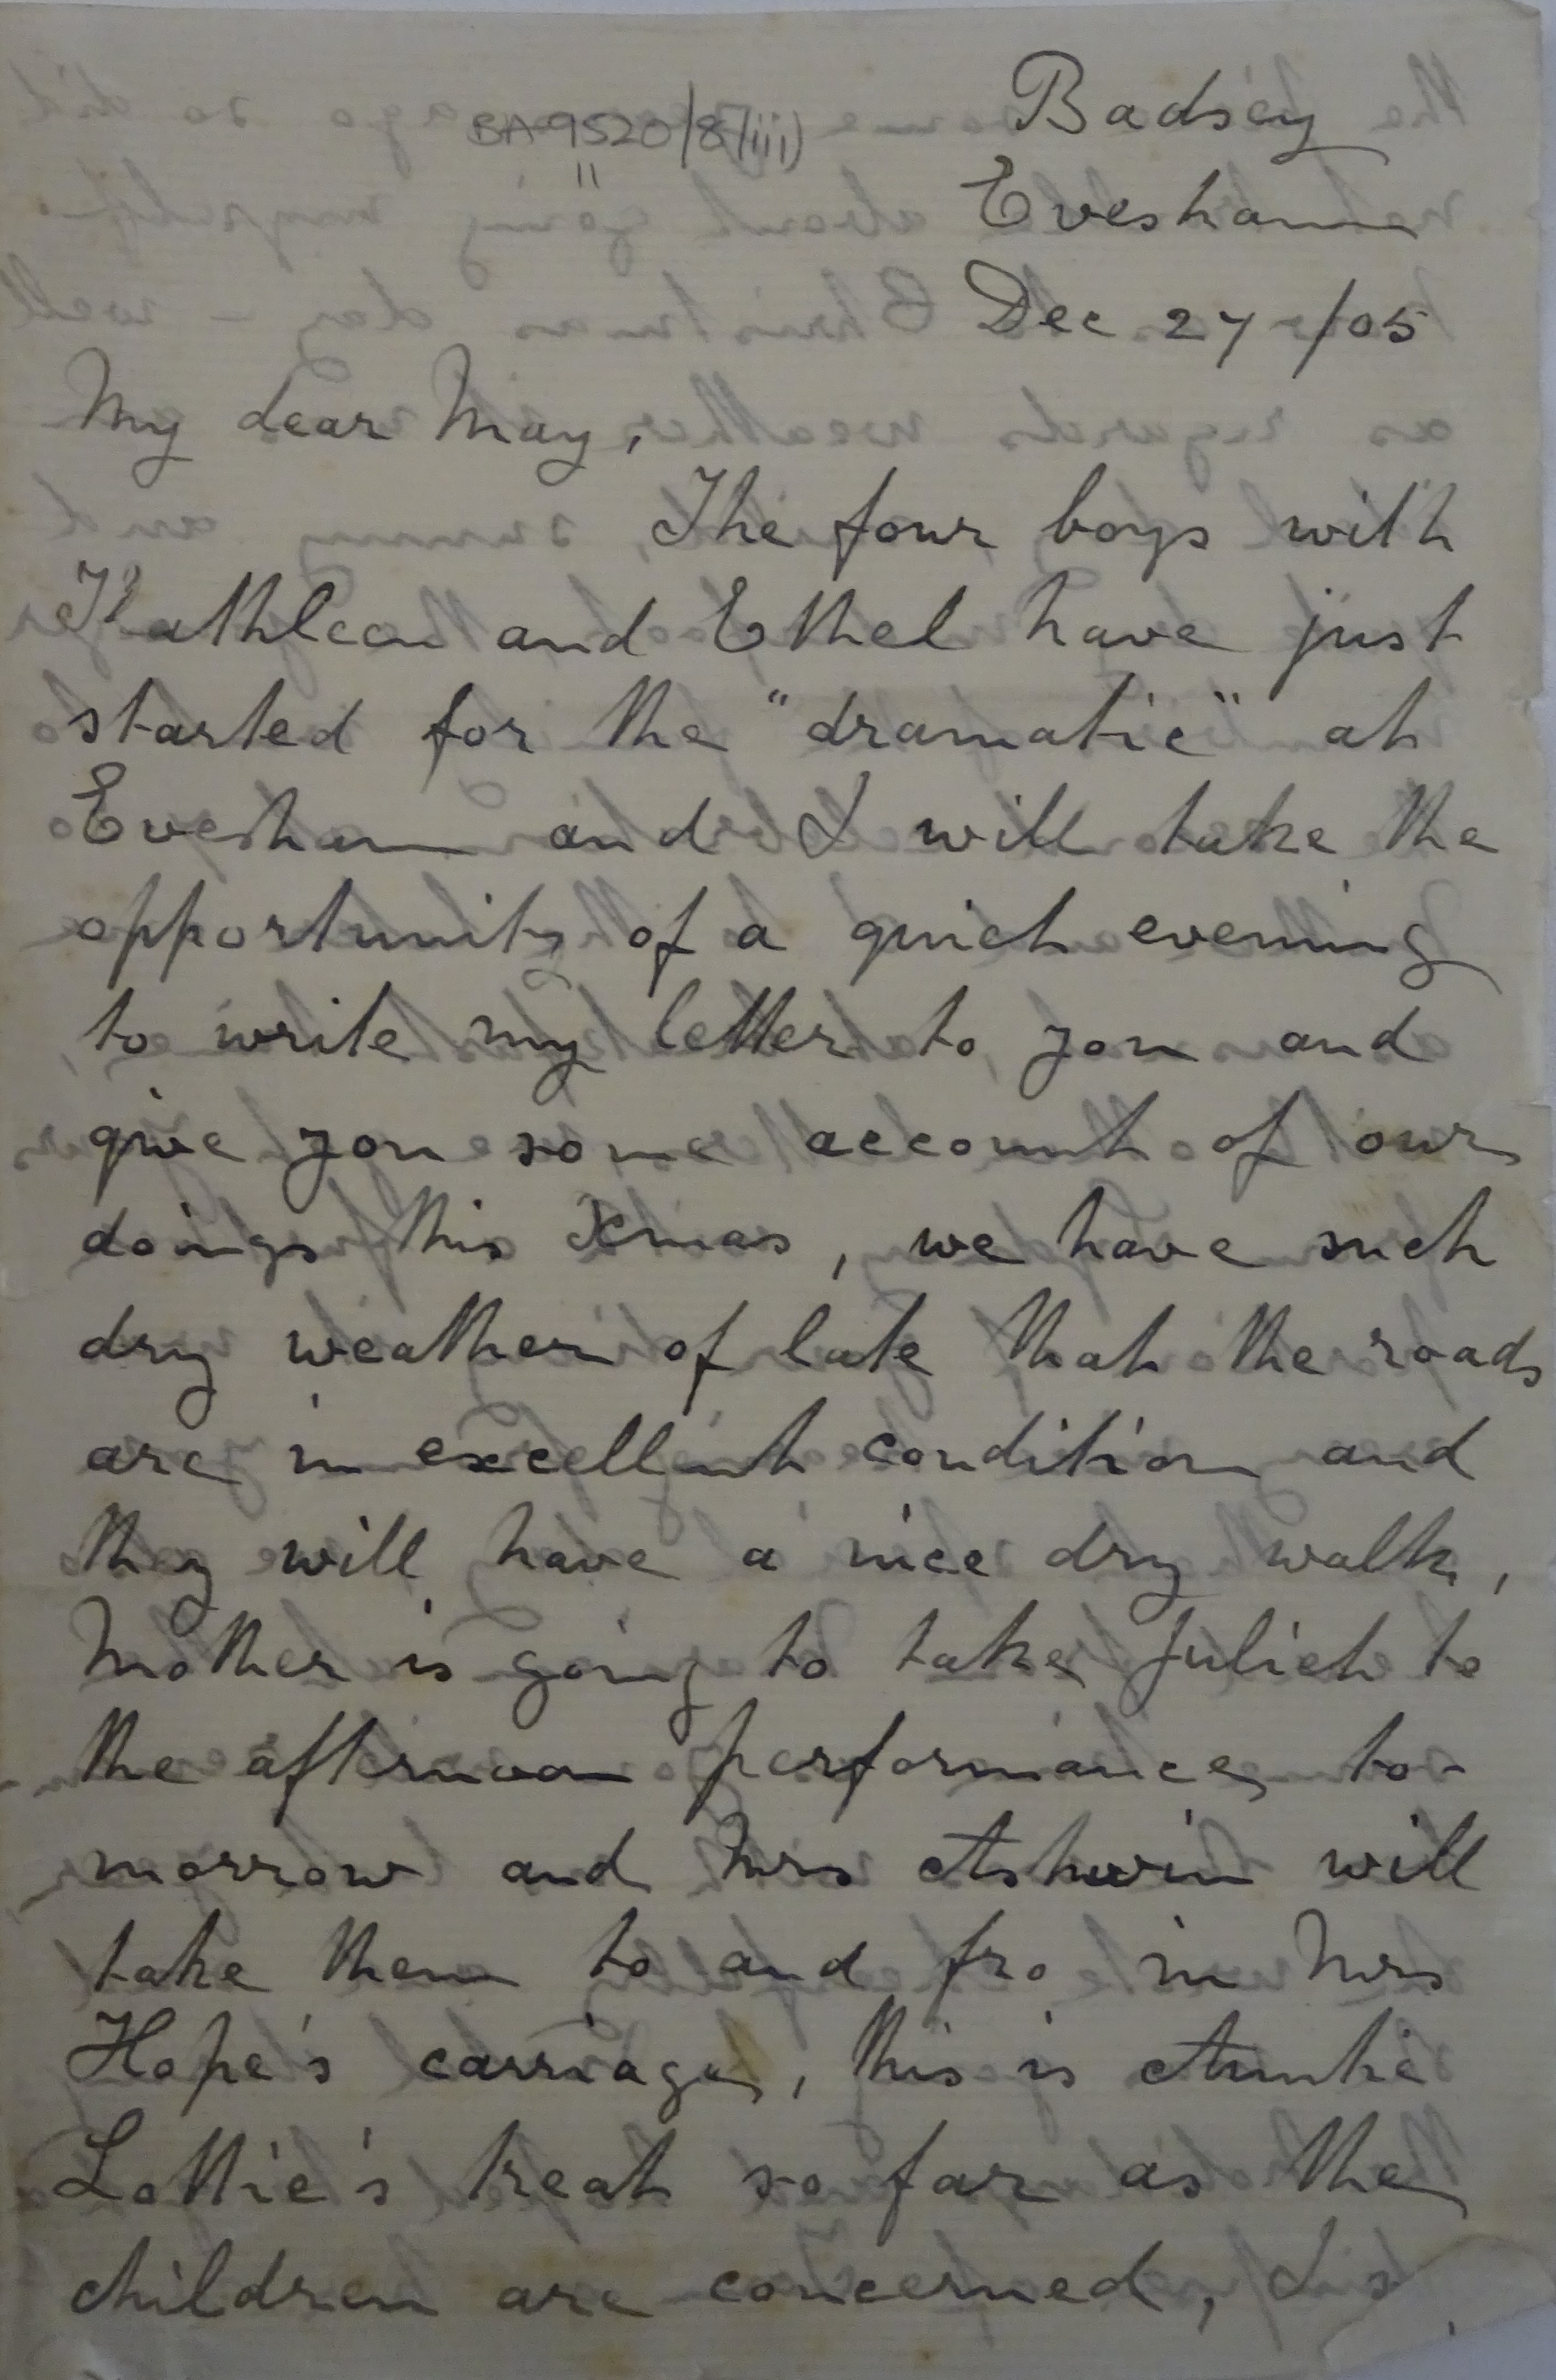 BA 9520/8/iii)
11
Badsey
Evesham
Dec 27/05
My dear May,
The four boys with
Kathleen and Ethel have just
started for the "dramatic" at
Evesham and I will take the
opportunity of a quiet evening
to write my letter to you and
give you some account of our
doings this Xmas, we have such
dry weather of late that the roads
are in excellent condition and
they will have a nice dry walk,
Mother is going to take Juliet to
the afternoon performance to-
morrow and Mrs Ashwin will
take them to and fro in Mrs
Hope's carriage, this is Auntie
Lottie's treat so far as the
children are concerned,